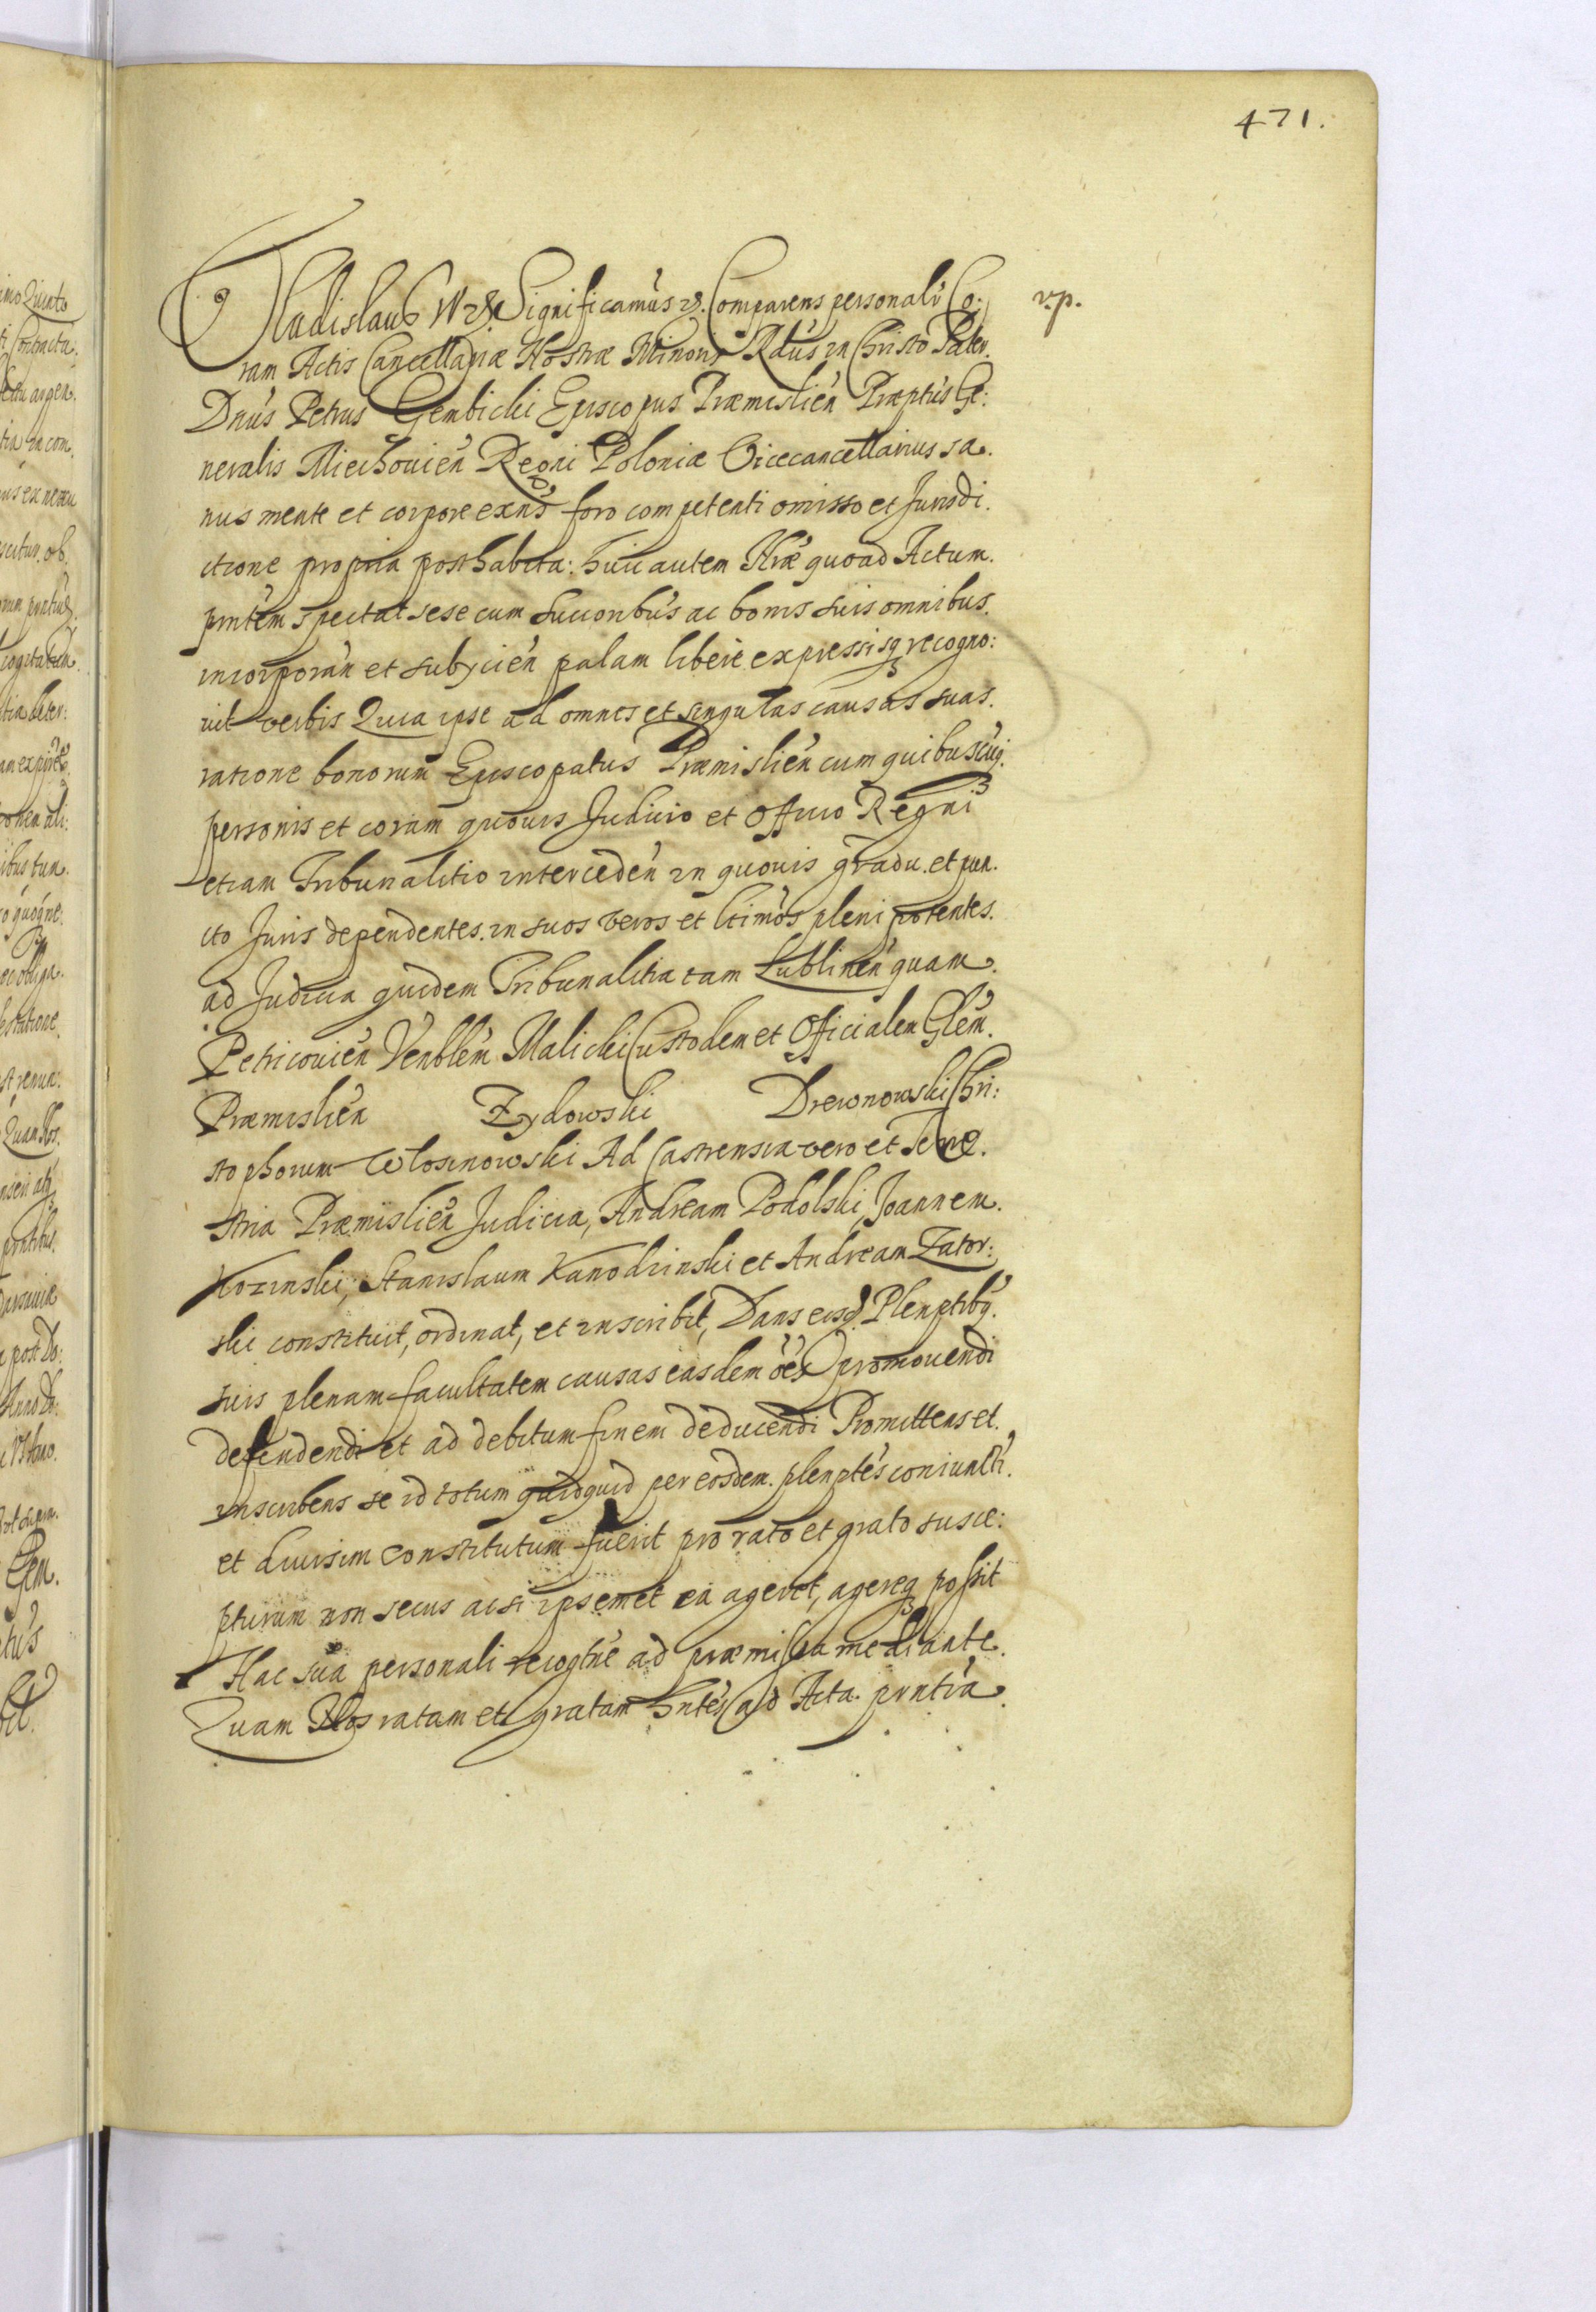 471.
Vladislaus IV &c. Significamus &c. Comparens personalr Co: v.p.
ram Actis Cancellariæ Nostræ Minoris Rdus in Christo Pater
Dnus Petrus Gembicki Episcopus Præmislien Præptus Ge:
neralis Miechouien Regni Poloniæ Vicecancellarius sa.
nus mente et corpore exns foro competenti omisso et Jurisdi.
ctione propria posthabita: huic autem Nræ quoad Actum.
pntem spectat sese cum Succoribus ac bonis suis omnibus.
incorporan et subycien palam libere expressisq recogno:
uit verbis Quia ipse ad omnes et singulas causas suas.
ratione bonorum Episcopatus Præmislien cum quibuscuq.
personis et coram quouis Judicio et Officio Regni
etiam Tribunalitio interceden in quouis gradu. et pun.
cto Juris dependentes. in suos veros et ltimos plenipotentes.
ad Judicia quidem Tribunalitia tam Lublinen quam.
Petricouien Venblem Malicki Custodem et Officialem Glem.
Præmislien Zydowski Drewnowski Chri:
stophorum Wlosinowski Ad Castrensia vero et Terre.
stria Præmislien Judicia, Andream Podolski, Joannem.
Kozinski, Stanislaum Kanodzinski et Andream Zator:
ski constituit, ordinat, et inscribit, Dans eisd. Plenptibq.
suis plenam facultatem causas easdem oes promouendi
defendendi et ad debitum finem deducendi Promittens et.
inscribens se id totum quidquid per eosdem. plenptes coniunctr.
et diuisim constitutum fuerit pro rato et grato susce:
pturum non secus ac si ipsemet ea ageret, agereq possit
Hac sua personali recogtne ad præmissa mediante.
Quam Nos ratam et gratam hntes ad Acta pntia.